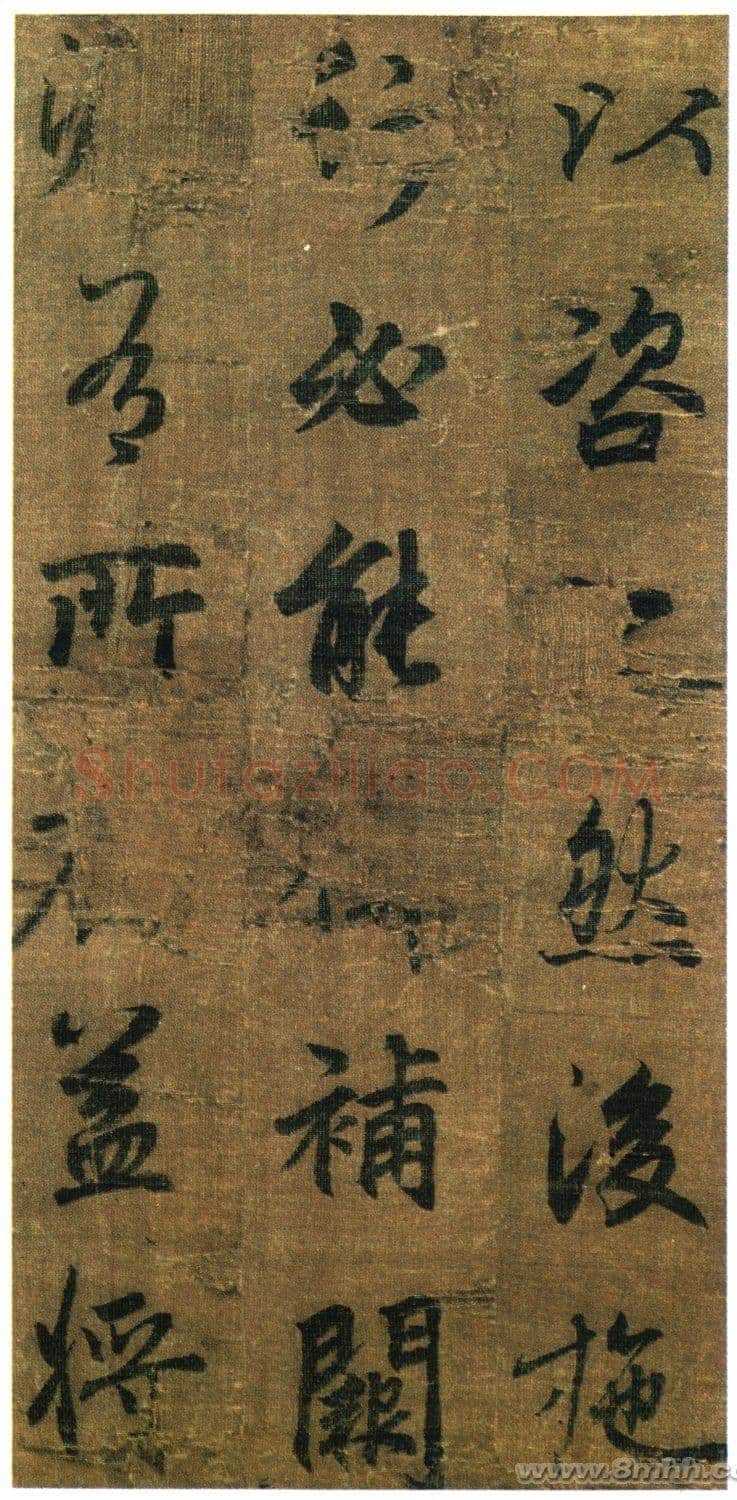 以咨然後施
行必能補闕
有所益將
Shufaziliao.COM
www.8mhh.co